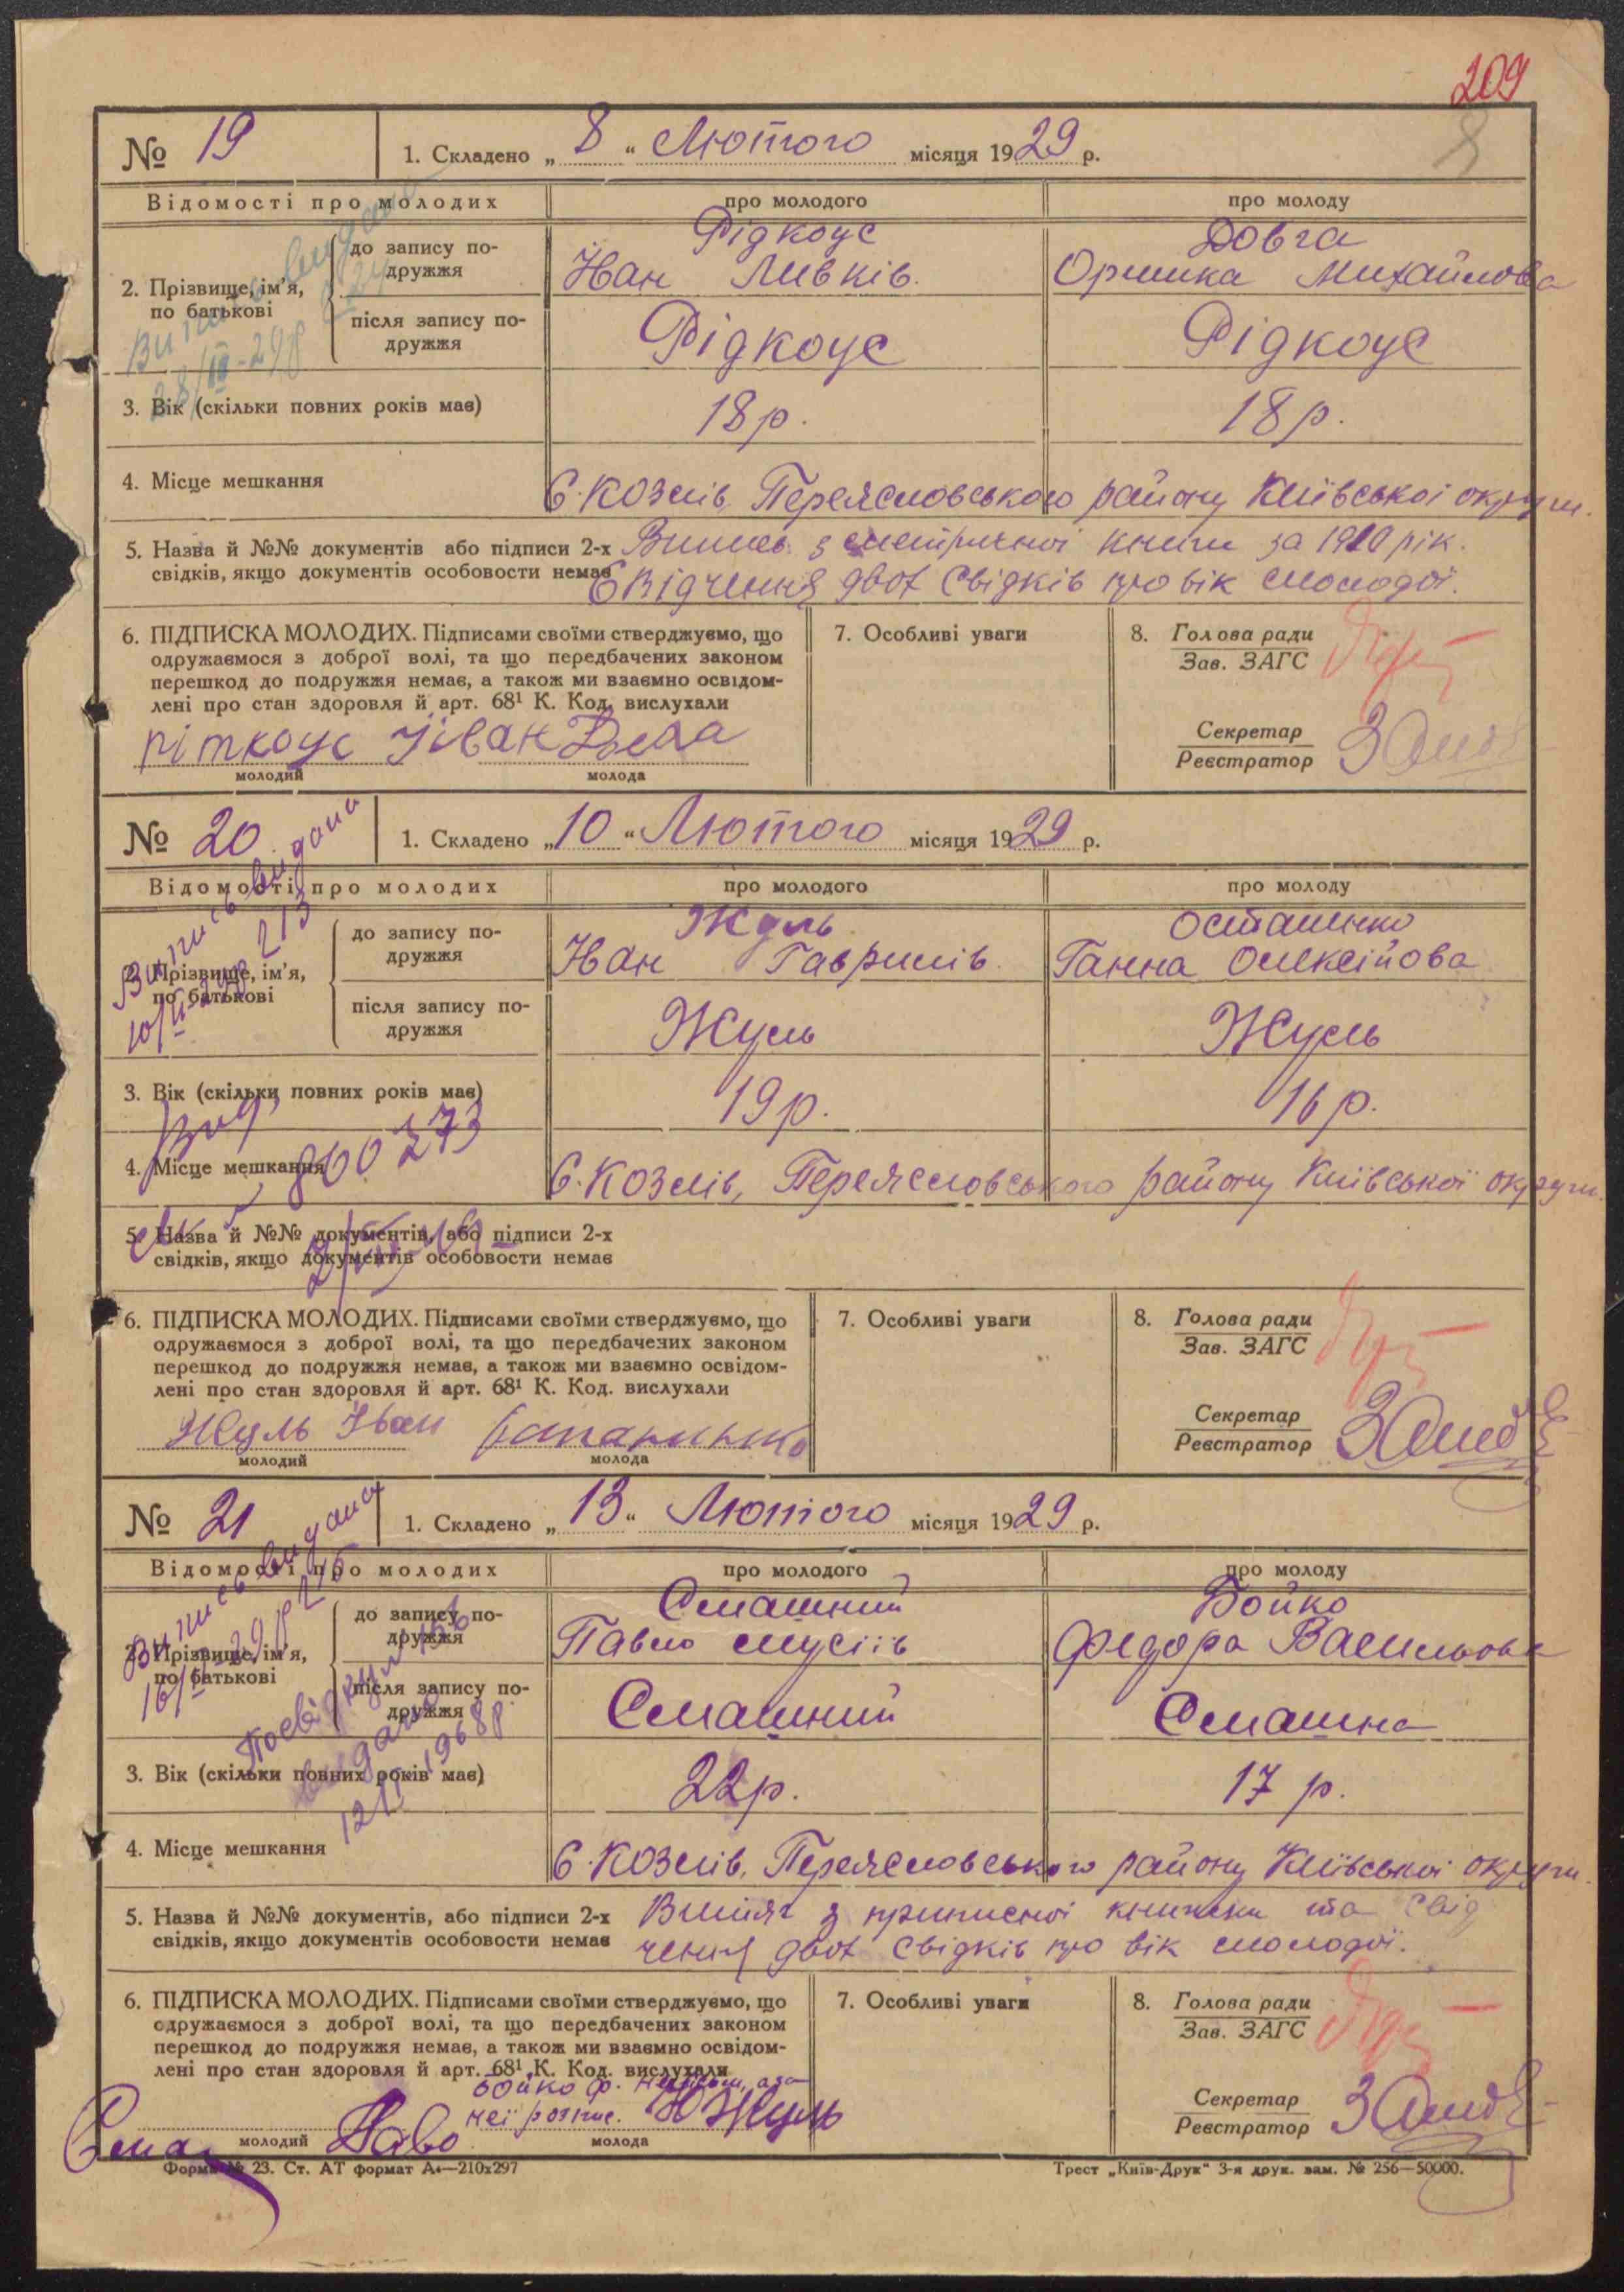 209
8
№ 19
1. Складено „ 8 “ Лютого місяця 1929 р.
Відомості про молодих
про молодого
про молоду
2. Прізвище, ім’я, по батькові
до запису подружжя
Рідкоус
Іван Ливків
Довга
Оришка Михайлова
після запису подружжя
Рідкоус
Рідкоус
3. Вік (скільки повних років має)
18 р.
18 р.
4. Місце мешкання
С. Козлів, Переяславського району Київської округи.
5. Назва й №№ документів або підписи 2-х
свідків, якщо документів особовости немає
Випись з метричної книги за 1910 рік.
Свідчення двох свідків про вік молодої.
6. ПІДПИСКА МОЛОДИХ. Підписами своїми стверджуємо, що
одружаємося з доброї волі, та що передбачених законом
перешкод до подружжя немає, а також ми взаємно освідом-
лені про стан здоровля й арт. 68¹ К. Код. вислухали
ріткоус Іван
молодий
молода
7. Особливі уваги
8. Голова ради
Зав. ЗАГС
Секретар
Реєстратор
№ 20
1. Складено „ 10 “ Лютого місяця 1929 р.
Випись видана
Відомості про молодих
про молодого
про молоду
2. Прізвище, ім’я, по батькові
до запису подружжя
Жуль
Іван Гаврилів
Осташенко
Ганна Олексійова
після запису подружжя
Жуль
Жуль
3. Вік (скільки повних років має)
19 р.
16 р.
4. Місце мешкання
С. Козлів, Переяславського району Київської округи.
5. Назва й №№ документів, або підписи 2-х
свідків, якщо документів особовости немає
6. ПІДПИСКА МОЛОДИХ. Підписами своїми стверджуємо, що
одружаємося з доброї волі, та що передбачених законом
перешкод до подружжя немає, а також ми взаємно освідом-
лені про стан здоровля й арт. 68¹ К. Код. вислухали
Жуль Іван
молодий
молода
7. Особливі уваги
8. Голова ради
Зав. ЗАГС
Секретар
Реєстратор
№ 21
1. Складено „ 13 “ Лютого місяця 1929 р.
Випись видана
Відомості про молодих
про молодого
про молоду
2. Прізвище, ім’я, по батькові
до запису подружжя
Смашний
Павло Мусіїв
Бойко
Федора Васильова
після запису подружжя
Смашний
Смашна
3. Вік (скільки повних років має)
22 р.
17 р.
4. Місце мешкання
С. Козлів, Переяславського району Київської округи.
5. Назва й №№ документів, або підписи 2-х
свідків, якщо документів особовости немає
Витяг з приписної книжки та свід
чення двох свідків про вік молодої.
6. ПІДПИСКА МОЛОДИХ. Підписами своїми стверджуємо, що
одружаємося з доброї волі, та що передбачених законом
перешкод до подружжя немає, а також ми взаємно освідом-
лені про стан здоровля й арт. 68¹ К. Код. вислухали
Бойко Ф. неписьм, а за
неї розпис. Жуль
молодий
молода
7. Особливі уваги
8. Голова ради
Зав. ЗАГС
Секретар
Реєстратор
Форма № 23. Ст. АТ формат А₄—210х297
Трест „Київ-Друк“ 3-я друк. зам. № 256—50000.